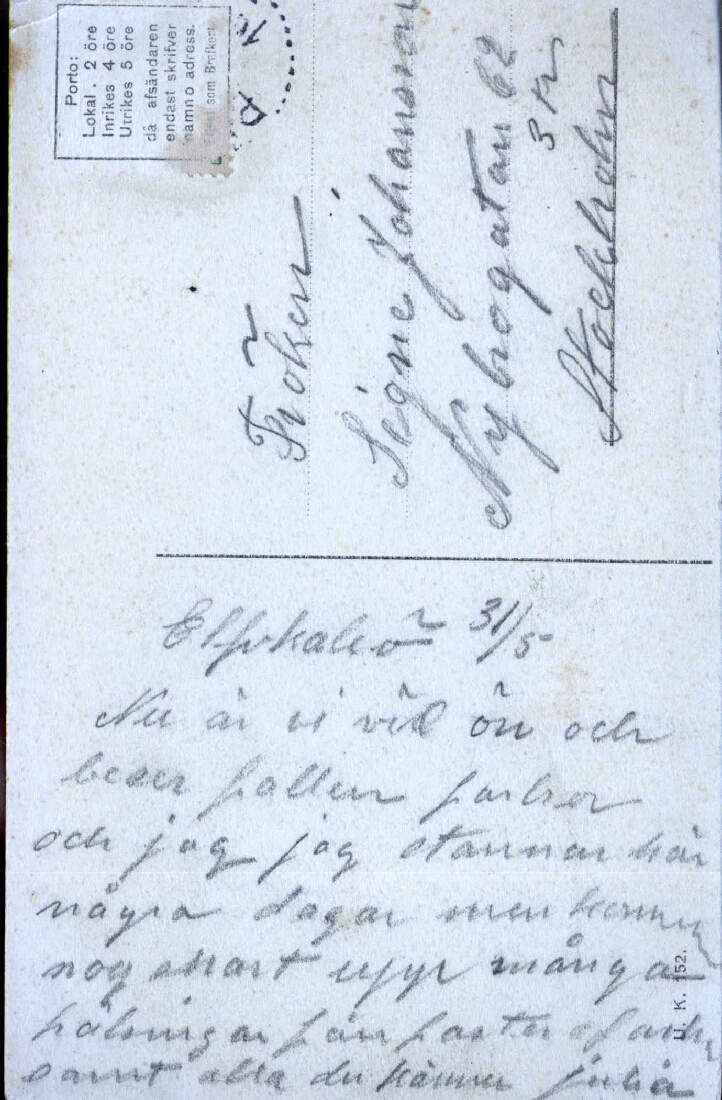 Porto:
Lokal . 2 öre
Inrikes 4 öre
Utrikes 5 öre
då afsändaren
endast skrifver
namn o adress.
som Brefkort.
Fröken
Signe Johansson
Nybrogatan 62
3 tr
Stockholm
Elfkaleö 31/5
Nu är vi vid ön och
beser fallen farbror
och jag jag stannar här
några dagar men kommer
nog snart upp många
hälsningar från faster o farbr
samt alla du känner Julia
U. K. 152.